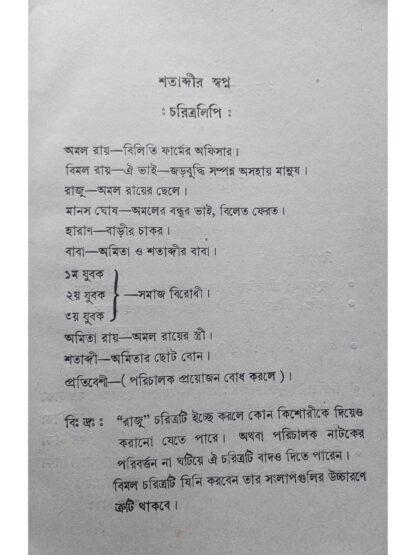 শতাব্দীর স্বপ্ন
: চরিত্রলিপি :
অমল রায়—বিলিতি ফার্মের অফিসার।
বিমল রায়—ঐ ভাই—জড়বুদ্ধি সম্পন্ন অসহায় মানুষ।
রাজু—অমল রায়ের ছেলে।
মানস ঘোষ—অমলের বন্ধুর ভাই, বিলেত ফেরত।
হারাণ—বাড়ীর চাকর।
বাবা—অমিতা ও শতাব্দীর বাবা।
১ম যুবক
২য় যুবক } —সমাজ বিরোধী।
৩য় যুবক
অমিতা রায়—অমল রায়ের স্ত্রী।
শতাব্দী—অমিতার ছোট বোন।
প্রতিবেশী—( পরিচালক প্রয়োজন বোধ করলে )।
বিঃ দ্রঃ : “রাজু” চরিত্রটি ইচ্ছে করলে কোন কিশোরীকে দিয়েও
করানো যেতে পারে। অথবা পরিচালক নাটকের
পরিবর্তন না ঘটিয়ে ঐ চরিত্রটি বাদও দিতে পারেন।
বিমল চরিত্রটি যিনি করবেন তার সংলাপগুলির উচ্চারণে
ত্রুটি থাকবে।